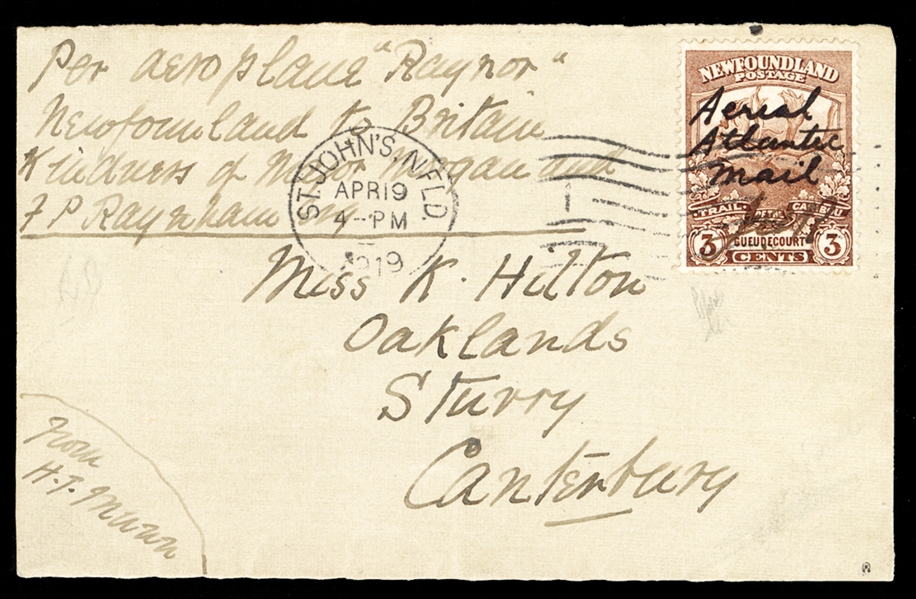 Per aeroplane "Raynor"
Newfoundland to Britain
Kindness of Major Morgan and
F P Raynham Esq
ST. JOHN'S, NFLD
APR 19
4--PM
1919
NEWFOUNDLAND
POSTAGE
Aerial
Atlantic
Mail
TRAIL OF THE CARIBOU
3 GUEUDECOURT 3
CENTS
Miss K. Hilton
Oaklands
Sturry
Canterbury
From
H.T. Munn